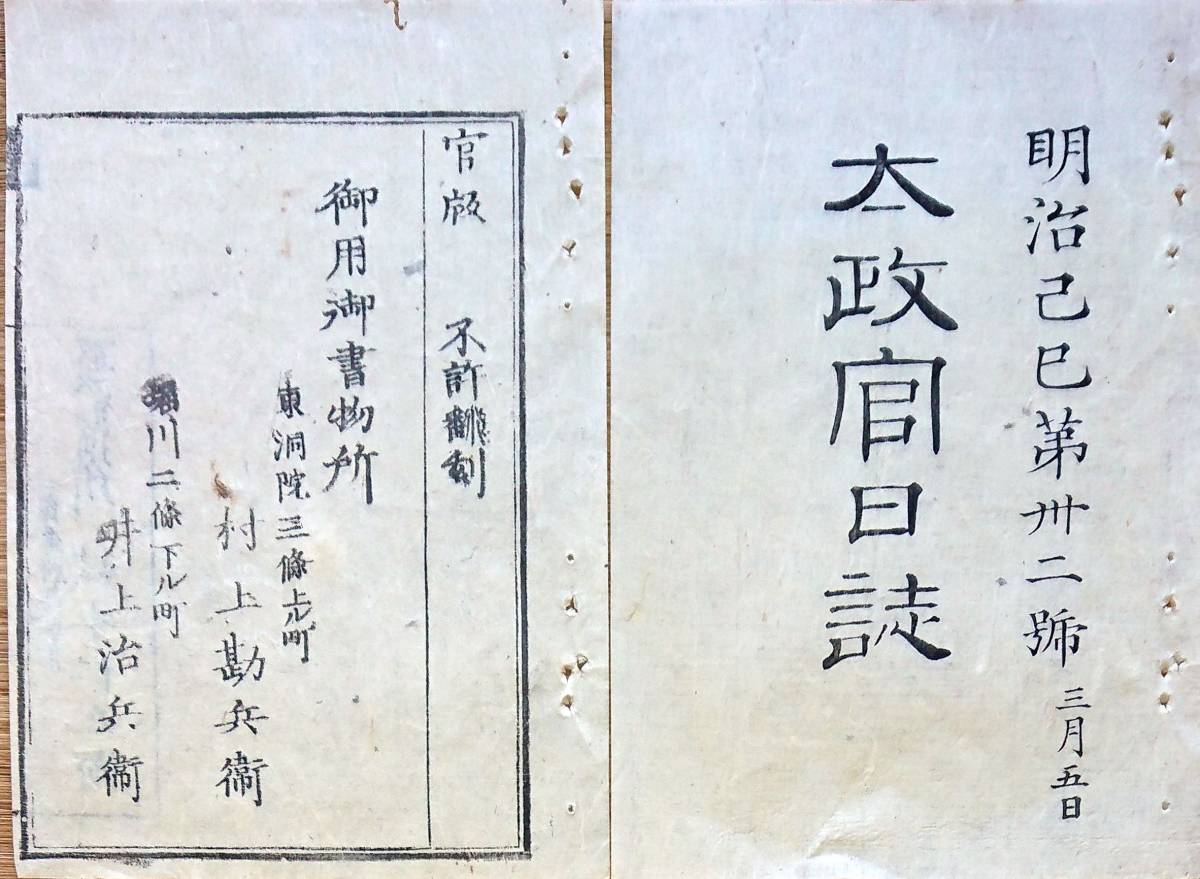 明治己巳第卅二號 三月五日
太政官日誌
官版 不許翻刻
御用御書物所
東洞院三條上ル町
村上勘兵衞
堀川二條下ル町
井上治兵衞